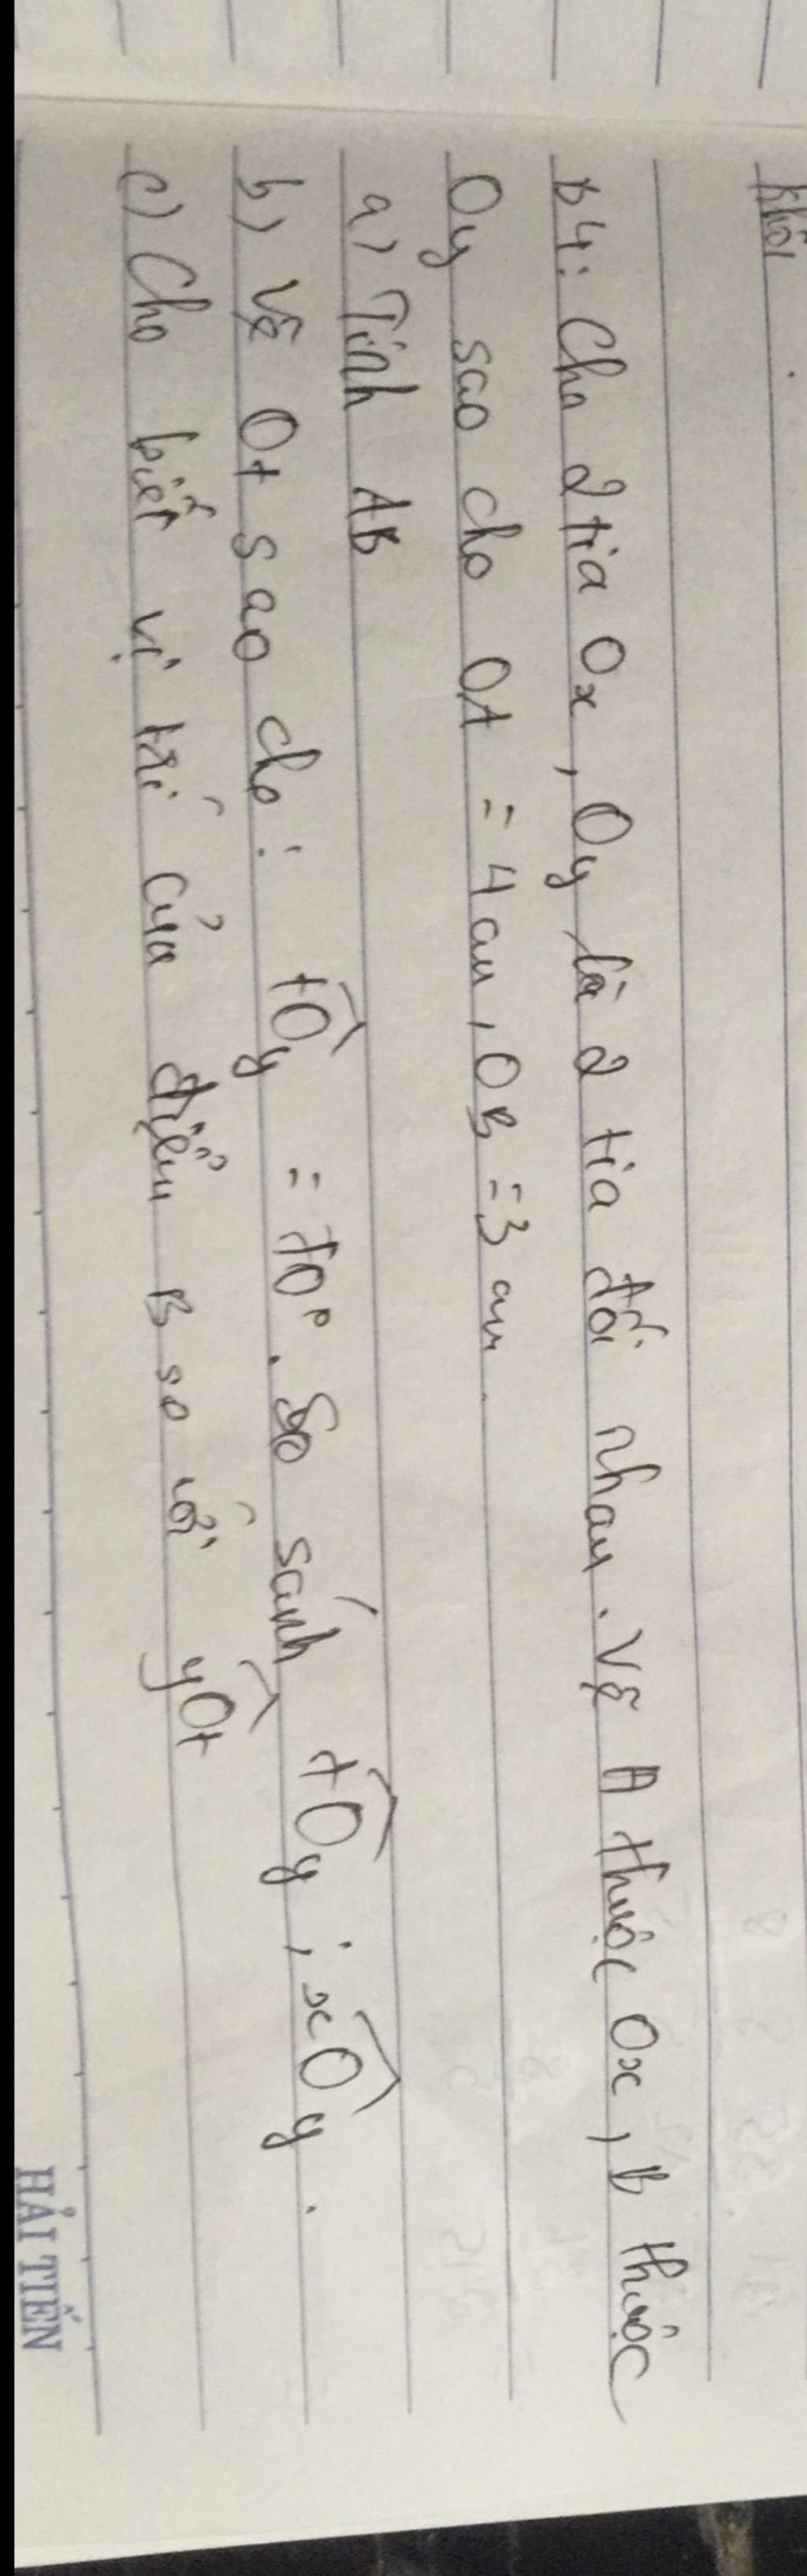 Khối
B4: Cho 2 tia Ox, Oy là 2 tia đối nhau. Vẽ A thuộc Ox, B thuộc
Oy sao cho OA = 4cm, OB = 3cm.
a) Tính AB
b) Vẽ Ot sao cho: tÔy = 70°. So sánh tÔy; xÔy.
c) Cho biết vị trí của điểm B so với yÔt
HẢI TIẾN